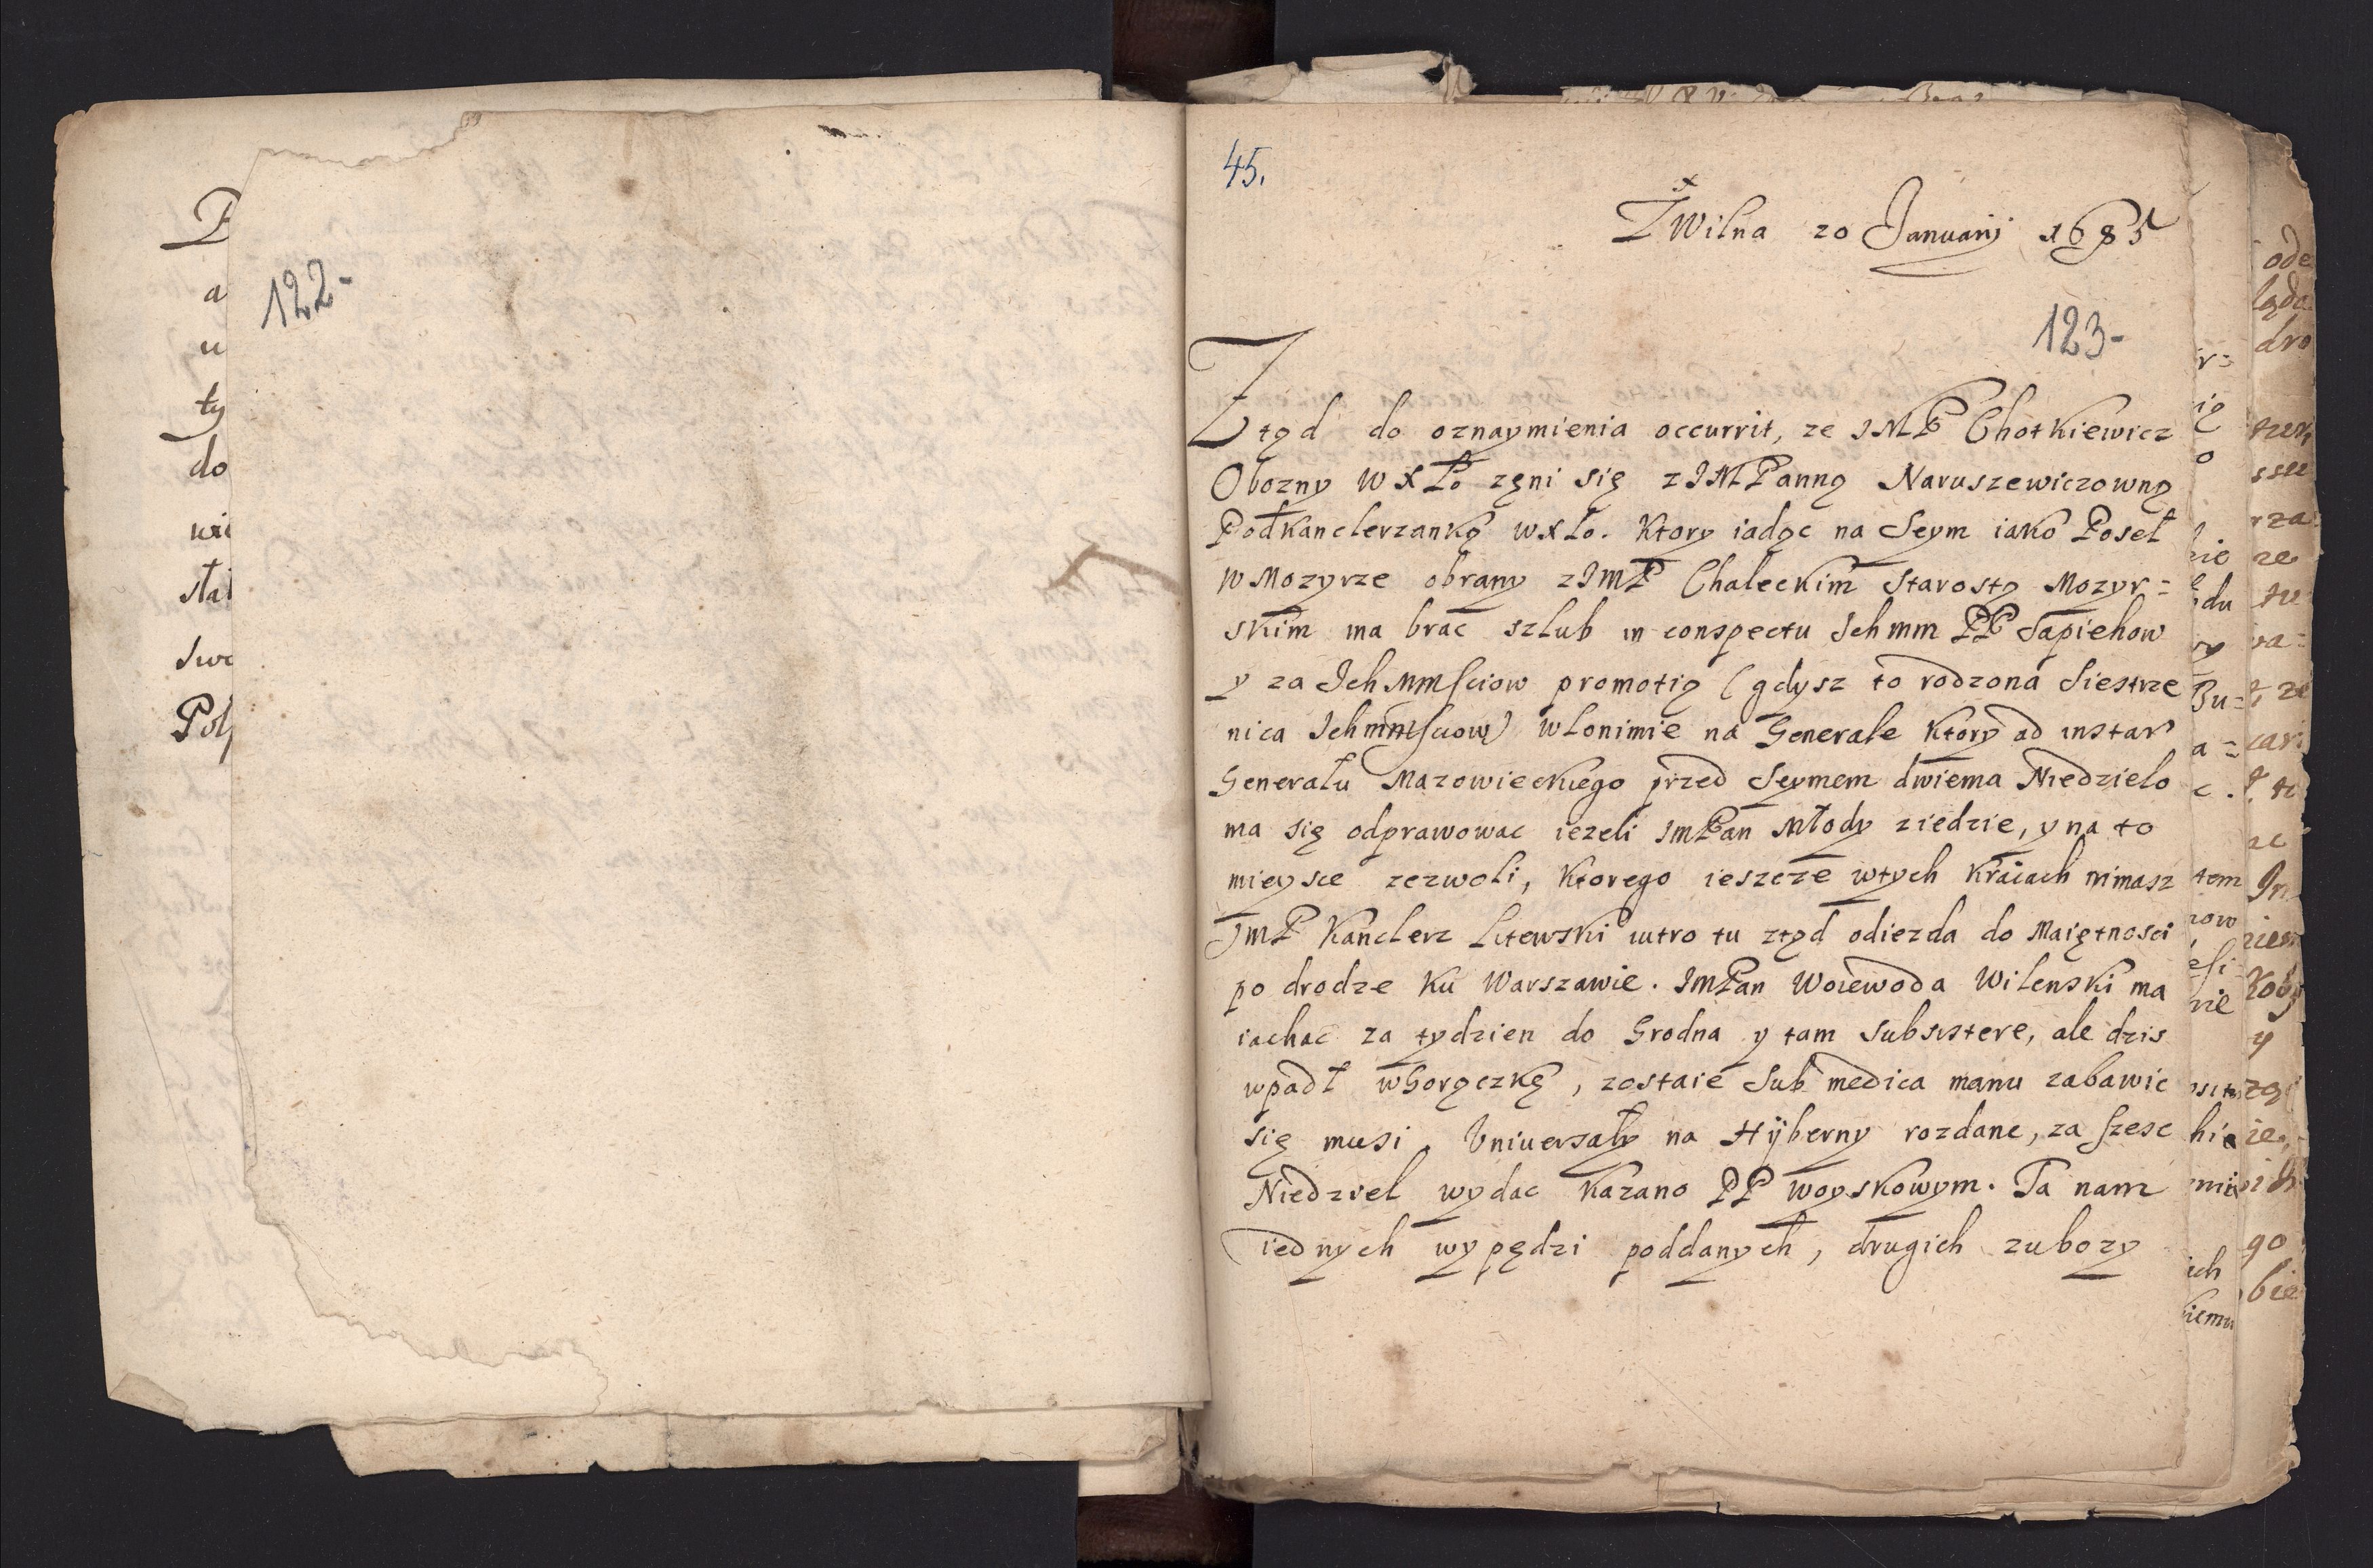 122-
45.
Z Wilna 20 Januarij 1685
123-
Ztąd do oznaymienia occurrit, ze JMP Chotkiewicz
Obozny WXLo zęni się z JMPanną Naruszewiczowną
Podkanclerzanką WXLo. Ktory iadąc na Seym iako Poseł
w Mozyrze obrany z JmP Chaleckim Starostą Mozyr=
skim ma brac szlub in conspectu Jchmm PP Sapiehow
y za JchMmsciow promotią (gdysz to rodzona Siestrze
nica Jchmmsciow) w Lonimie na Generale Ktory ad instar
Generału Mazowieckiego przed Seymem dwiema Niedzielo
ma się odprawowac iezeli JmPan Młody ziedzie, y na to
mieysce zezwoli, Ktorego ieszcze w tych Kraiach nimasz
JmP Kanclerz Litewski iutro tu ztąd odiezda do Maiętnosci
po drodze Ku Warszawie. JmPan Woiewoda Wilenski ma
iachac za tydzien do Grodna y tam subsistere, ale dzis
wpadł w Gorączkę, zostaie sub medica manu zabawic
się musi. Uniuersały na Hÿberny rozdane, za szesc
Niedziel wydac Kazano PP woyskowym. Ta nam
iednych wypędzi poddanych, drugich zubozy